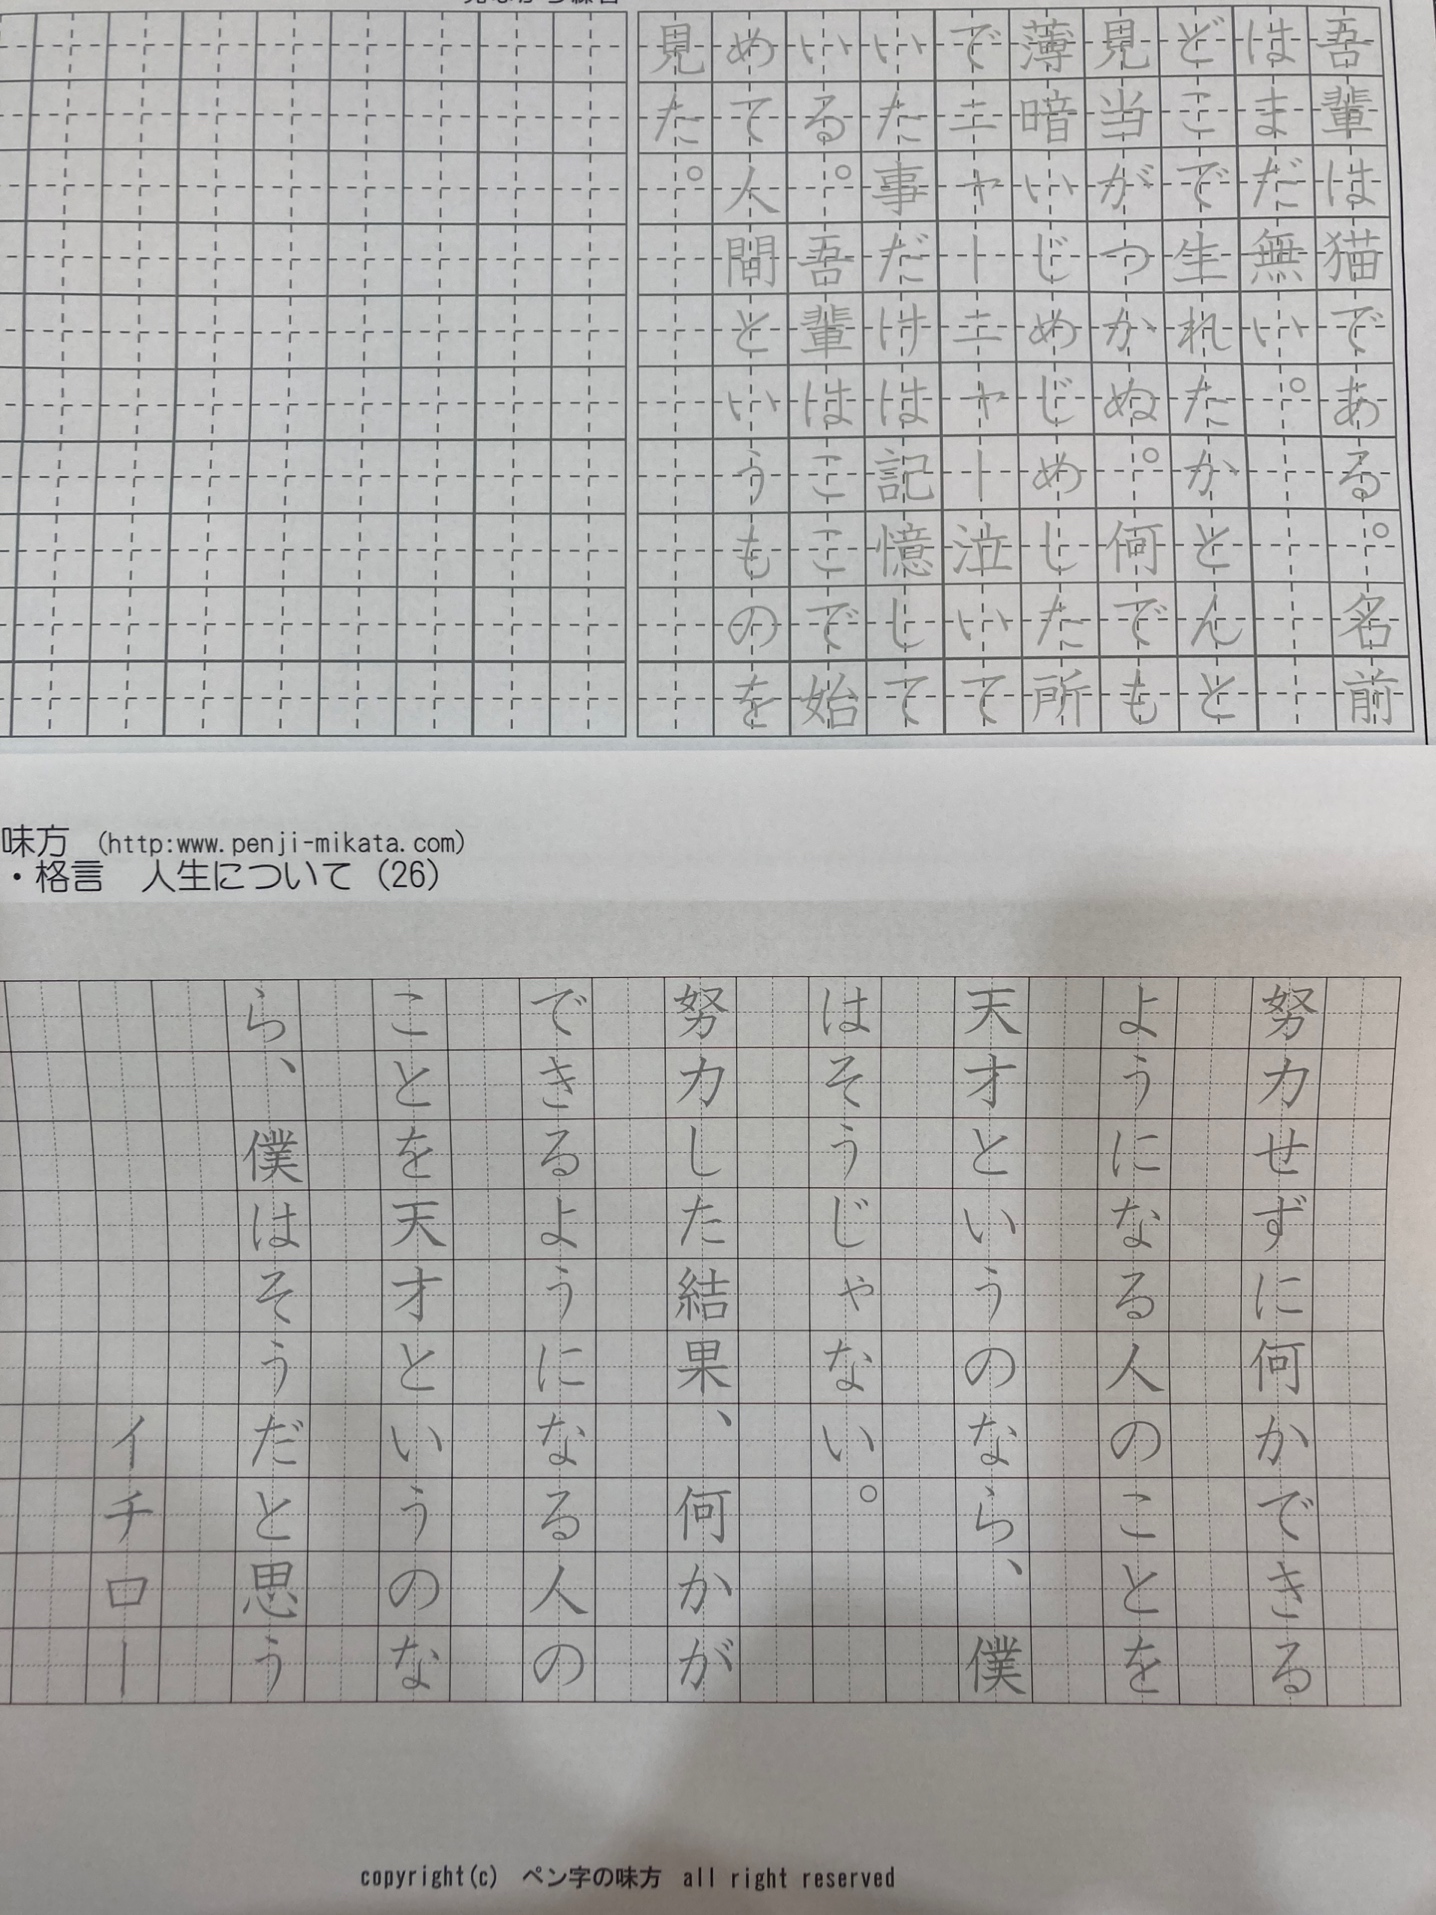 吾輩は猫である。名前
はまだ無い。
どこで生れたかとんと
見当がつかぬ。何でも
薄暗いじめじめした所
でニャーニャー泣いて
いた事だけは記憶して
いる。吾輩はここで始
めて人間というものを
見た。
味方 (http:www.penji-mikata.com)
・格言 人生について(26)
努力せずに何かできる
ようになる人のことを
天才というのなら、僕
はそうじゃない。
努力した結果、何かが
できるようになる人の
ことを天才というのな
ら、僕はそうだと思う
イチロー
copyright(c) ペン字の味方 all right reserved